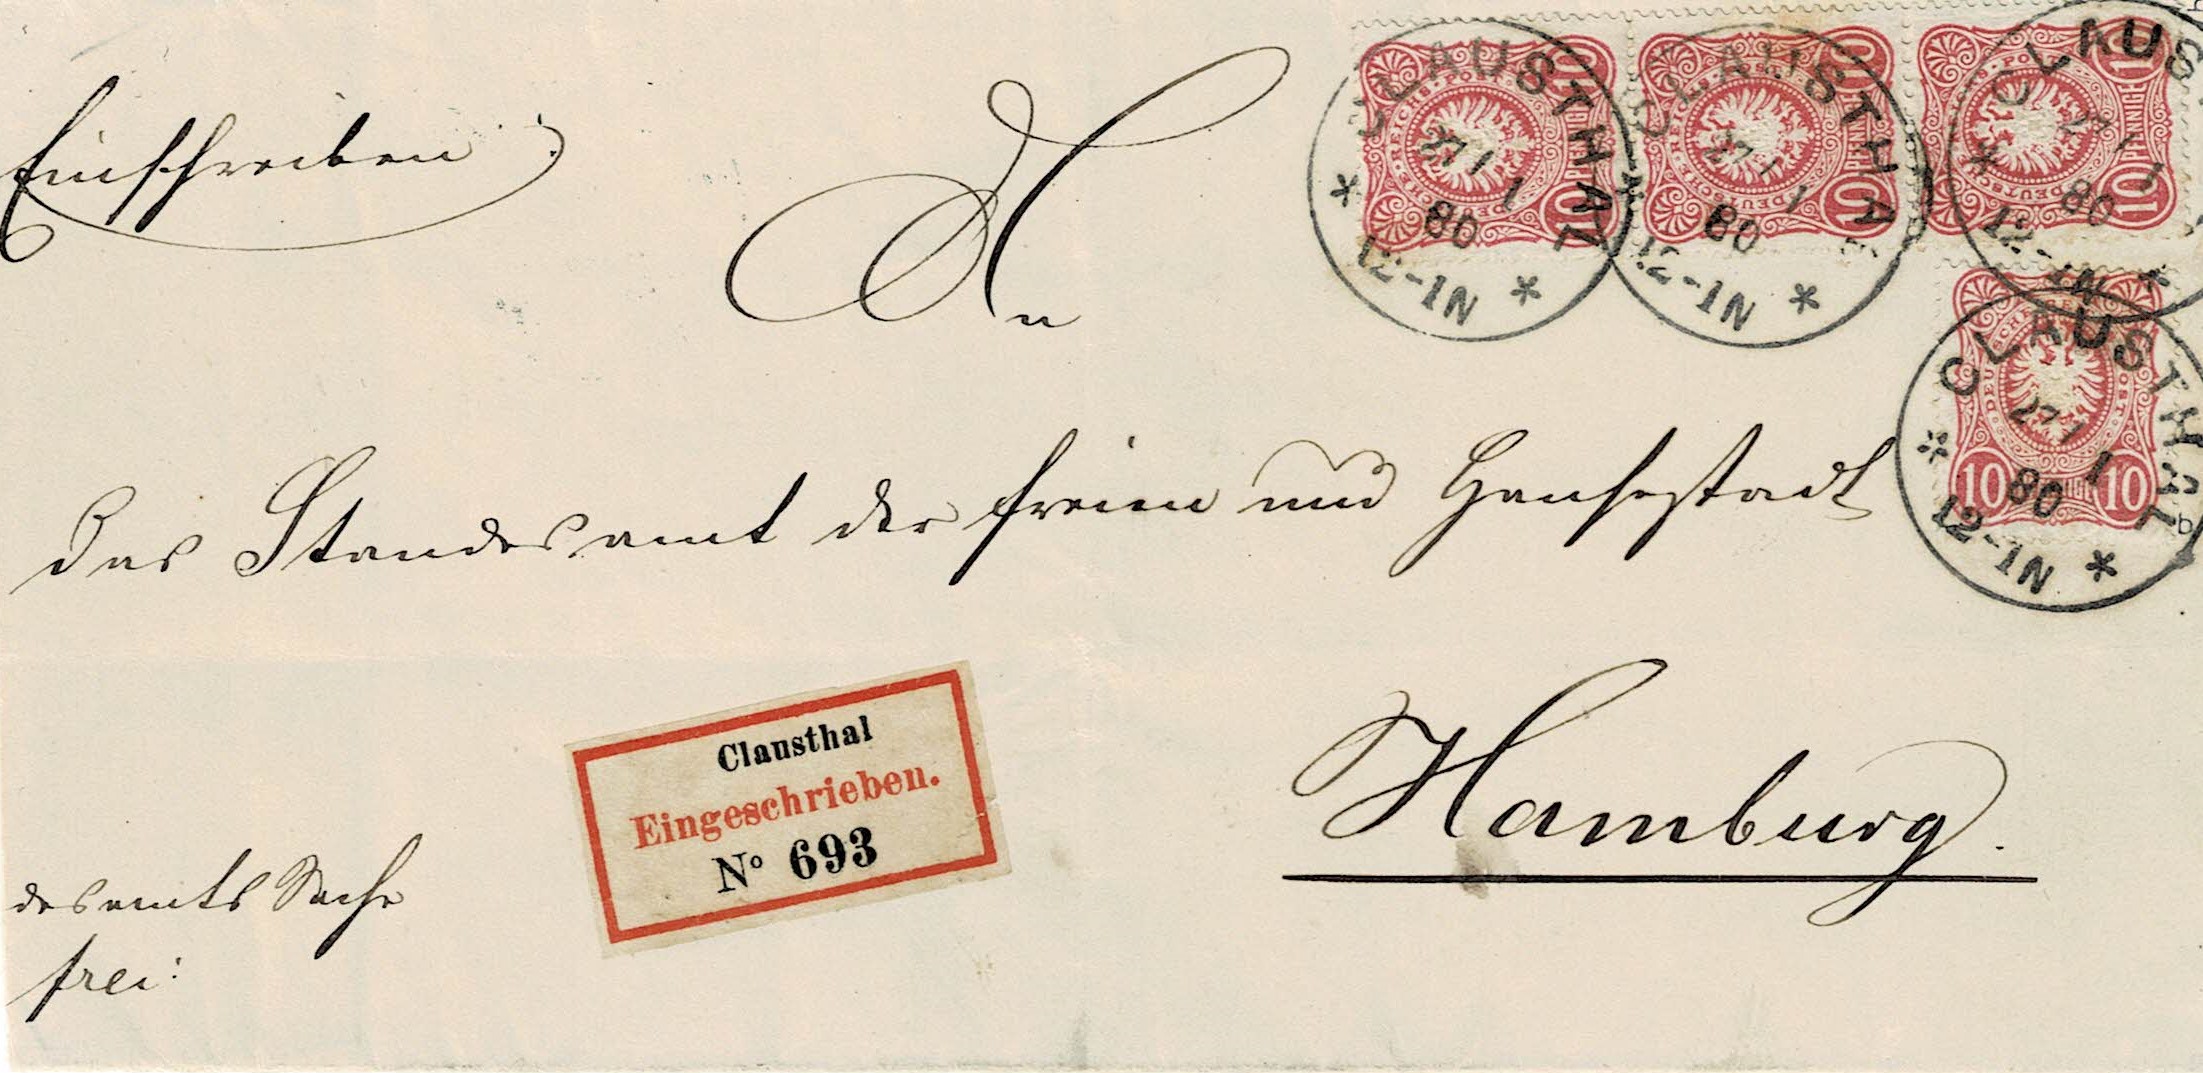 Einschreiben.
An
das Standesamt der freien und Hansestadt
Hamburg.
desamts Sache
frei:
Clausthal
Eingeschrieben.
Nº 693
CLAUSTHAL
27 / 1
80
12-1N
CLAUSTHAL
27 / 1
80
12-1N
CLAUS
27 / 1
80
12-1N
CLAUSTHAL
27 / 1
80
12-1N
b
10 10 PFENNIGE
10 10 PFENNIGE
10 10 PFENNIGE
DEUTSCHE REICHS-POST
10 10